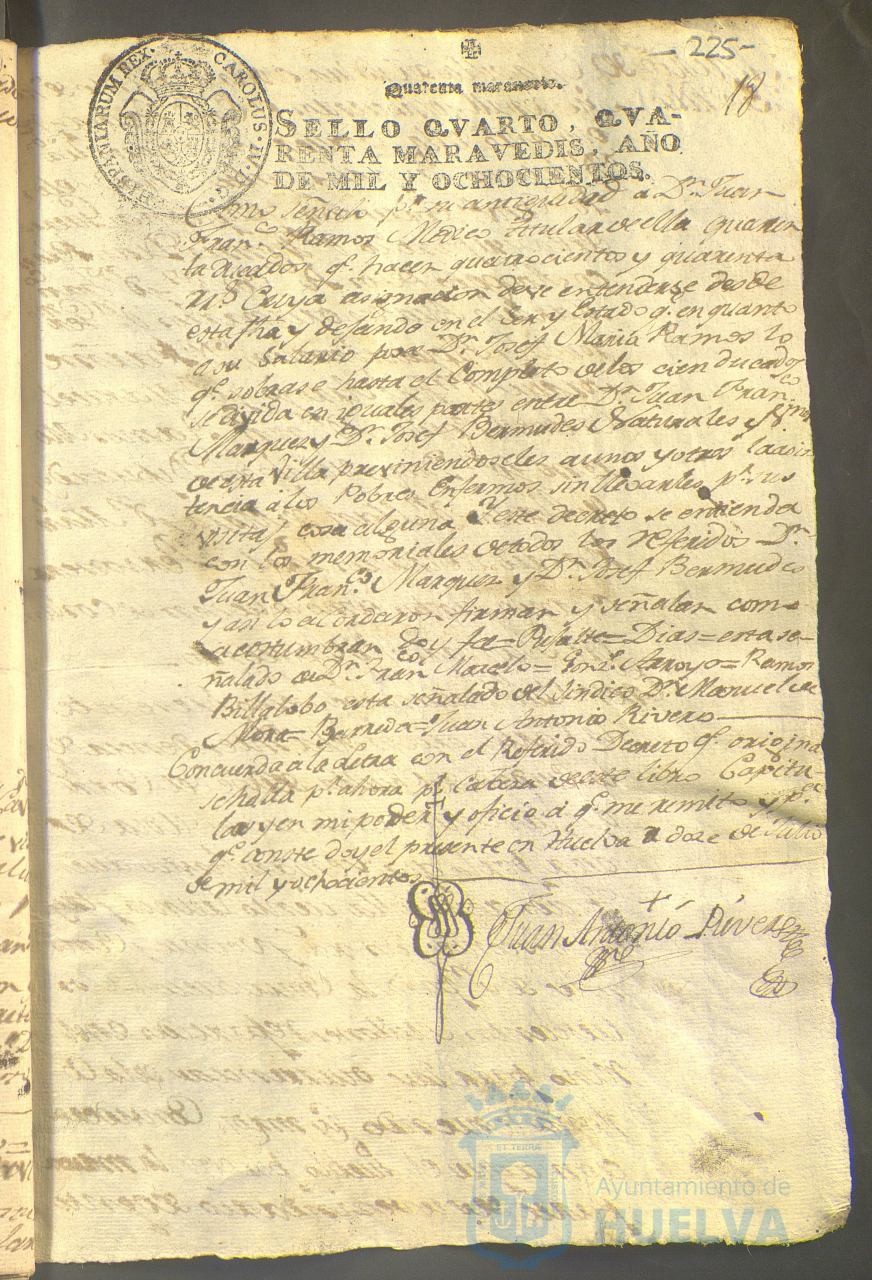 -225-
18
HISPANIARUM REX. CAROLUS. IV. D. G.
Quarenta maravedis.
SELLO QVARTO, QVA-
RENTA MARAVEDIS, AÑO
DE MIL Y OCHOCIENTOS.
señalen pr. su antiguedad a Dn. Juan
Franco. Ramos Medico titular de ella quaren
ta ducados qe. hacen quatrocientos y quarenta
rs. Cuya asignacion deve entenderse desde
esta fha y dejando en el Ser y Estado qe. en quanto
a su Salario goza Dn. Josef Maria Ramos lo
qe. sobrase hasta el Completo de los cien ducados
se divida en iguales partes entre Dn. Juan Franco.
Marquez y Dn. Josef Bermudes Naturales y
de esta Villa previniendoseles a unos y otros la asis
tencia á los Pobres Enfermos sin llevarles pr. sus
visitas cosa alguna Y este decreto se entienda
con los memoriales de todos los referidos Dn.
Juan Franco. Marquez y Dn. Josef Bermudes
y asi lo acordaron firman y señalan como
acostumbran doy fe= = Dias= esta se-
ñalado de Dn. Franco. Marcelo= Gonz. Arroyo= Ramos
Billalobo esta señalado del Sindico Dn. Manuel de
Mora= Barreda= Juan Antonio Rivero
Concuerda a la letra con el Referido Decreto qe. origina
se halla pr. ahora pr. Cabeza de este libro Capitu-
lar y en mi poder y oficio á qe. me remito y pa.
qe. conste doy el presente en Huelva a dose de Julio
de mil y ochocientos
Juan Antonio Rivero
Ayuntamiento de
HUELVA